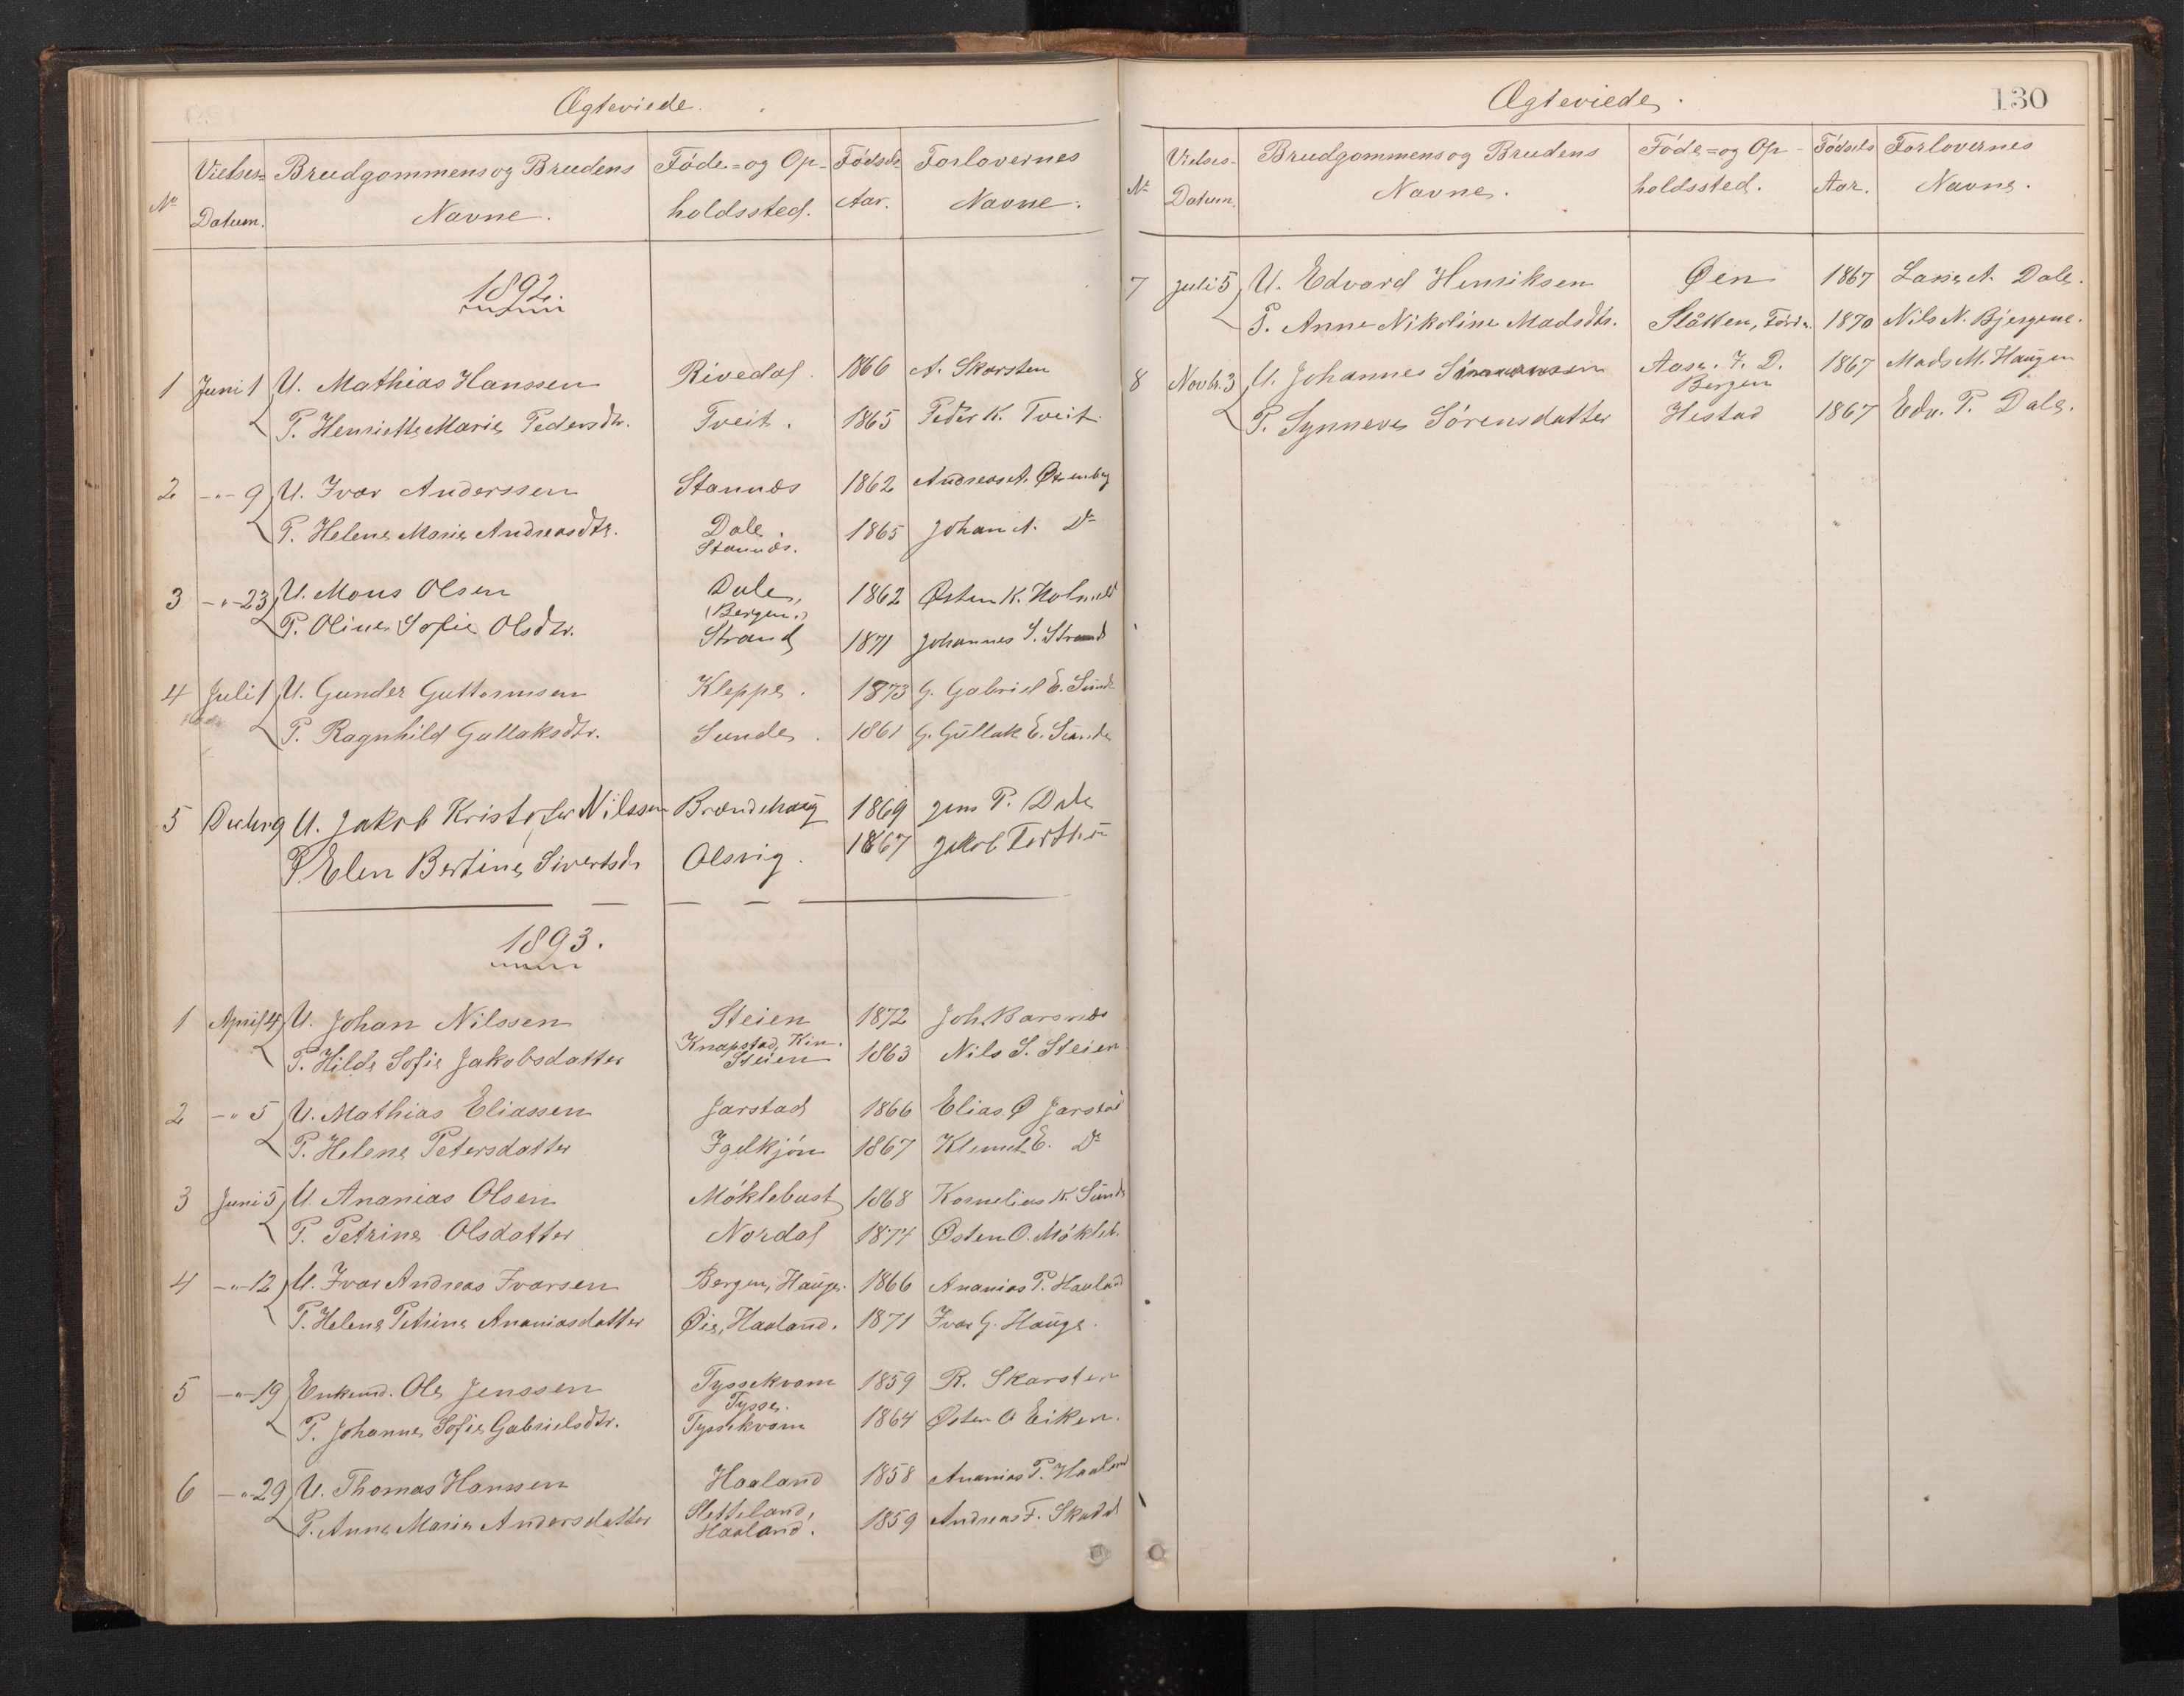 Ægteviede.
No Vielses-Datum. Brudgommens og Brudens Navne. Føde- og Opholdssted. Fødsels Aar. Forlovernes Navne.
1892.
1 Juni 1 U. Mathias Hanssen Rivedal. 1866 A. Skarsten
P. Henriette Marie Pedersdtr. Tveit. 1865 Peder K. Tveit
2 -"- 9 U. Ivar Anderssen Stannæs 1862 Andreas A.
P. Helene Marie Andreasdtr. Dale, Stannæs. 1865 Johan A. Do
3 -"- 23 U. Mons Olsen Dale, (Bergen.) 1862 Østen K.
P. Oline Sofie Olsdtr. Strand 1871 Johannes S. Strand
4 Juli 1 U. Gunder Guttormsen Kleppe. 1873 G. Gabriel E. Sunde
P. Ragnhild Gullaksdtr. Sunde. 1861 G. Gullak E. Sunde
5 Decbr 9 U. Jakob Kristofer Nilssen Brændehaug 1869 Jens P. Dale
P. Elen Bertine Sivertsdr Olsvig. 1867 Jakob
1893.
1 April 4 U. Johan Nilssen Steien 1872 Joh. Barsnæs
P. Hilde Sofie Jakobsdatter Knapstad, Kin. Steien 1863 Nils S. Steien
2 -" 5 U. Mathias Eliassen Jarstad 1866 Elias Ø Jarstad
P. Helene Petersdatter Igelkjøn 1867 Klemet E. Do
3 Juni 5 U. Ananias Olsen Møklebust 1868 Kornelius K. Sunde
P. Petrine Olsdatter Nordal 1874 Østen O. Mökleb.
4 -"- 12 U. Ivar Andreas Ivarsen Bergen, Hauge. 1866 Ananias P. Haaland
P. Helene Petrine Ananiasdatter Øie, Haaland. 1871 Ivar G. Hauge.
5 -"- 19 Enkemd. Ole Jenssen Tyssekvam 1859 R. Skarsten
P. Johanne Sofie Gabrielsdtr. Tysse. Tyssekvam 1864 Østen O Eiken.
6 -"- 29 U. Thomas Hanssen Haaland 1858 Ananias P. Haaland
P. Anne Marie Andersdatter Sletteland, Haaland. 1859 Andreas F.
Ægteviede. 130
No Vielses-Datum. Brudgommens og Brudens Navne. Føde- og Opholdssted. Fødsels Aar. Forlovernes Navne.
7 Juli 5 U. Edvard Henriksen Øen 1867 Lasse A. Dale.
P. Anne Nikoline Madsdtr. Slåtten, Förde. 1870 Nils N. Bjergene.
8 Novbr. 3 U. Johannes Aase. Y. D. Bergen 1867 Mads M. Haugen
P. Synneve Sörensdatter Hestad 1867 Edv. P. Dale.